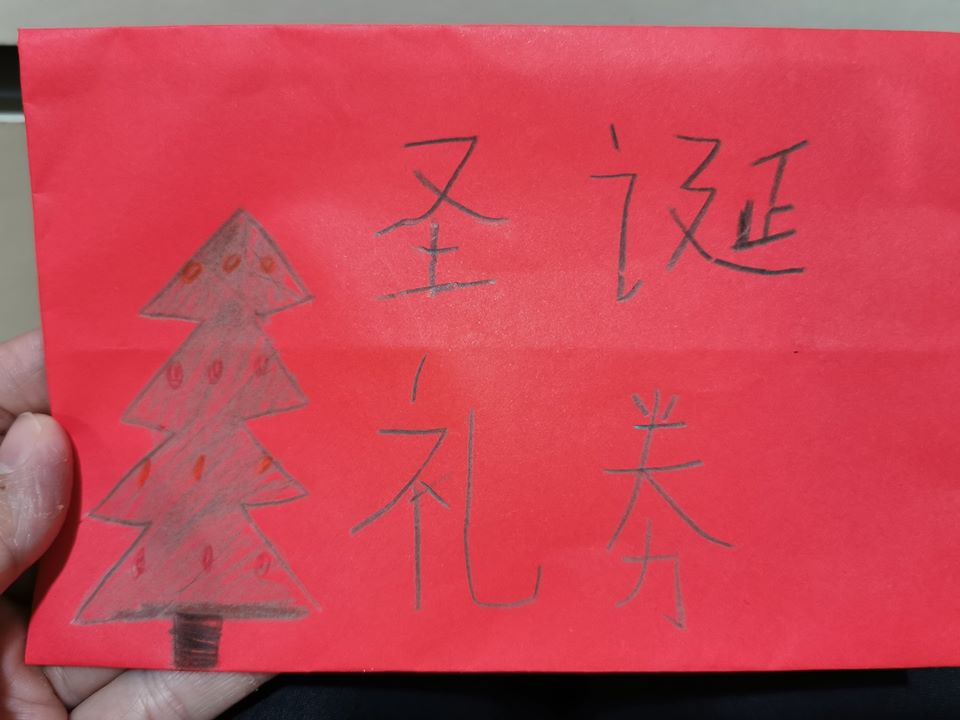 圣诞
礼券